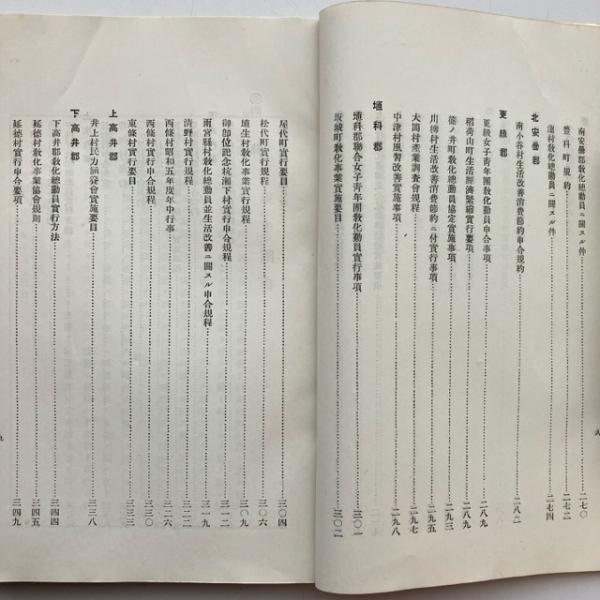 南安曇郡敎化總動員ニ關スル件……二七〇
豊科町規約……二七二
溫村敎化總動員ニ關スル件……二七四
北安曇郡
南小谷村生活改善消費節約申合規約……二八二
更級郡
更級女子靑年團敎化動員申合事項……二八九
稻荷山町生活經濟緊縮實行要項……二八九
篠ノ井町敎化總動員協定實施事項……二九三
川柳村生活改善消費節約ニ付實行事項……二九五
大岡村產業調査會規程……二九七
中津村風習改善實施事項……二九八
埴科郡
埴科郡聯合女子靑年團敎化動員實行事項……三〇一
坂城町敎化事業實施要目……三〇二
八
屋代町實行要目……三〇四
松代町實行規程……三〇六
埴生村敎化事業實行規程……三〇九
御卽位記念杭瀨下村實行申合規程……三一二
雨宮縣村敎化總動員並生活改善ニ關スル申合規程……三一九
淸野村實行規程……三二二
西條村昭和五年度年中行事……三二六
西條村實行申合規程……三三〇
東條村實行要目……三三三
上高井郡
井上村民力涵養會實施要目……三三八
下高井郡
下高井郡敎化總動員實行方法……三四四
延德村敎化事業協會規則……三四五
延德村實行申合要項……三四九
九